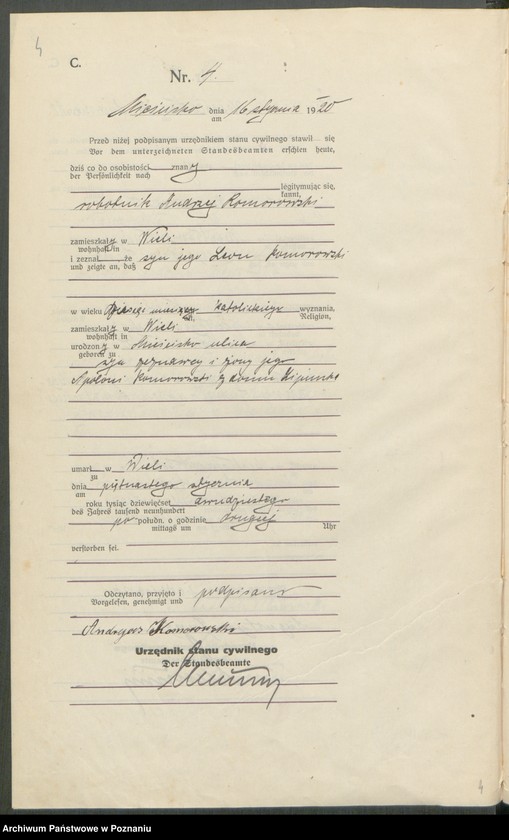 4
C.
Nr. 4.
Mieścisko dnia 16 stycznia 1920
am
Przed niżej podpisanym urzędnikiem stanu cywilnego stawił się
Vor dem unterzeichneten Standesbeamten erschien heute,
dziś co do osobistości znany
der Persönlichkeit nach
legitymując się,
kannt,
robotnik Andrzej Komorowski
zamieszkały w Wieli
wohnhaft in
i zeznał że syn jego Leon Komorowski
und zeigte an, daß
w wieku miesięcy katolickiego wyznania,
alt, Religion,
zamieszkały w Wieli
wohnhaft in
urodzony w Mieścisko ulica
geboren zu
syn zeznawcy i żony jego
Apoloni Komorowski z domu
umarł w Wieli
zu
dnia piętnastego stycznia
am
roku tysiąc dziewięćset dwudziestego
des Jahres tausend neunhundert
po połudn. o godzinie drugiej
mittags um Uhr
verstorben sei.
Odczytano, przyjęto i podpisano
Vorgelesen, genehmigt und
Andrzej Komorowski
Urzędnik stanu cywilnego
Der Standesbeamte
4
Archiwum Państwowe w Poznaniu